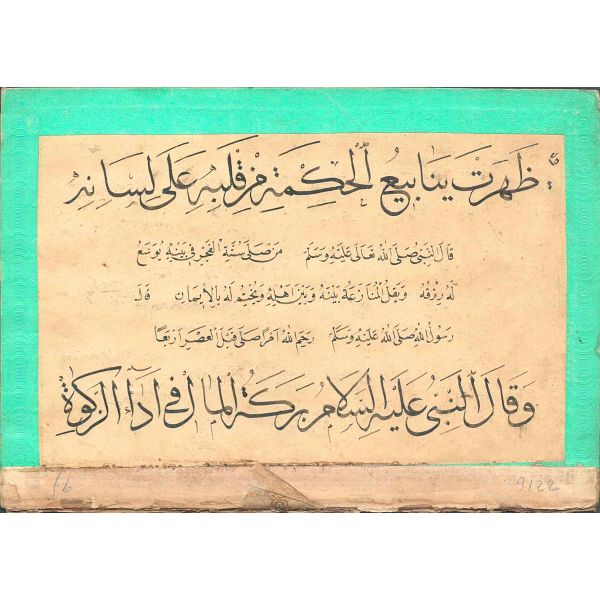 ظَهَرَتْ يَنَابِيعُ الْحِكْمَةِ مِنْ قَلْبِهِ عَلَى لِسَانِهِ
قَالَ النَّبِيُّ صَلَّى اللهُ تَعَالَى عَلَيْهِ وَسَلَّمَ مَنْ صَلَّى سُنَّةَ الْفَجْرِ فِي بَيْتِهِ يُوَسَّعُ
لَهُ رِزْقُهُ وَيَقِلُّ الْمُنَازَعَةُ بَيْنَهُ وَبَيْنَ اَهْلِهِ وَيُخْتَمُ لَهُ بِالْاِيمَانِ قَالَ
رَسُولُ اللهِ صَلَّى اللهُ عَلَيْهِ وَسَلَّمَ رَحِمَ اللهُ اَمْرَأً صَلَّى قَبْلَ الْعَصْرِ اَرْبَعًا
وَقَالَ النَّبِيُّ عَلَيْهِ السَّلَامُ بَرَكَةُ الْمَالِ فِي اَدَاءِ الزَّكٰوةِ
9122